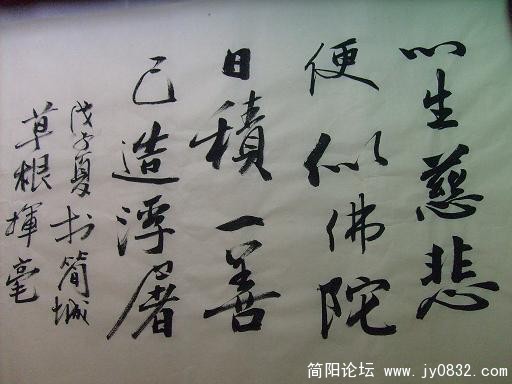 心生慈悲
便似佛陀
日積一善
已造浮屠
戊子夏书简城
草根揮毫
简阳论坛 www.jy0832.com